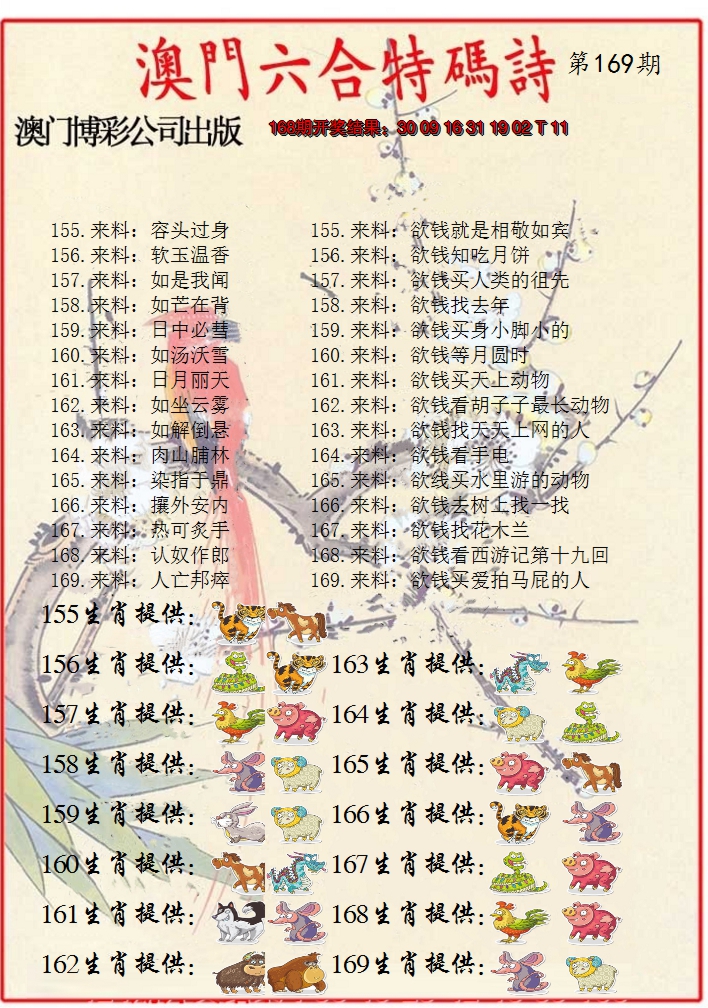 澳門六合特碼詩 第169期
澳门博彩公司出版 168期开奖结果：30 09 16 31 19 02 T 11
155.来料：容头过身 155.来料：欲钱就是相敬如宾
156.来料：软玉温香 156.来料：欲钱知吃月饼
157.来料：如是我闻 157.来料：欲钱买人类的祖先
158.来料：如芒在背 158.来料：欲钱找去年
159.来料：日中必彗 159.来料：欲钱买身小脚小的
160.来料：如汤沃雪 160.来料：欲钱等月圆时
161.来料：日月丽天 161.来料：欲钱买天上动物
162.来料：如坐云雾 162.来料：欲钱看胡子子最长动物
163.来料：如解倒悬 163.来料：欲钱找天天上网的人
164.来料：肉山脯林 164.来料：欲钱看手电
165.来料：染指于鼎 165.来料：欲线买水里游的动物
166.来料：攘外安内 166.来料：欲钱去树上找一找
167.来料：热可炙手 167.来料：欲钱找花木兰
168.来料：认奴作郎 168.来料：欲钱看西游记第十九回
169.来料：人亡邦瘁 169.来料：欲钱买爱拍马屁的人
155生肖提供：
156生肖提供： 163生肖提供：
157生肖提供： 164生肖提供：
158生肖提供： 165生肖提供：
159生肖提供： 166生肖提供：
160生肖提供： 167生肖提供：
161生肖提供： 168生肖提供：
162生肖提供： 169生肖提供：